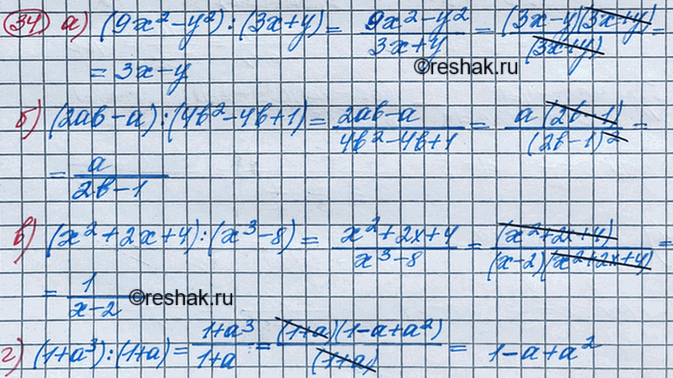 34 а) (9x²-y²):(3x+y) = 9x²-y² / 3x+y = (3x-y)(3x+y) / (3x+y) =
= 3x-y
©reshak.ru
б) (2ab-a):(4b²-4b+1) = 2ab-a / 4b²-4b+1 = a(2b-1) / (2b-1)² =
= a / 2b-1
в) (x²+2x+4):(x³-8) = x²+2x+4 / x³-8 = (x²+2x+4) / (x-2)(x²+2x+4) =
= 1 / x-2
©reshak.ru
г) (1+a³):(1+a) = 1+a³ / 1+a = (1+a)(1-a+a²) / (1+a) = 1-a+a²